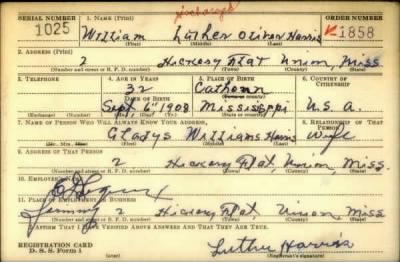 Discharged
SERIAL NUMBER 1. NAME (Print) ORDER NUMBER
1025 William Luther Oliver Harris V1858
(First) (Middle) (Last)
2. ADDRESS (Print)
2 Hickory Flat Union, Miss.
(Number and street or R. F. D. number) (Town) (County) (State)
3. TELEPHONE 4. AGE IN YEARS 5. PLACE OF BIRTH 6. COUNTRY OF CITIZENSHIP
32 Calhoun
DATE OF BIRTH (Town or county)
Sept. 6 1908 Mississippi U. S. A.
(Mo.) (Day) (Yr.) (State or country)
7. NAME OF PERSON WHO WILL ALWAYS KNOW YOUR ADDRESS 8. RELATIONSHIP OF THAT PERSON
Gladys Williams Harris Wife
(Mr., Mrs., Miss) (First) (Middle) (Last)
9. ADDRESS OF THAT PERSON
2 Hickory Flat, Union, Miss.
(Number and street or R. F. D. number) (Town) (County) (State)
10. EMPLOYER'S NAME
11. PLACE OF EMPLOYMENT OR BUSINESS
2 Hickory Flat, Union, Miss
(Number and street or R. F. D. number) (Town) (County) (State)
I AFFIRM THAT I HAVE VERIFIED ABOVE ANSWERS AND THAT THEY ARE TRUE.
REGISTRATION CARD Luther Harris
D. S. S. Form 1 (Registrant's signature)